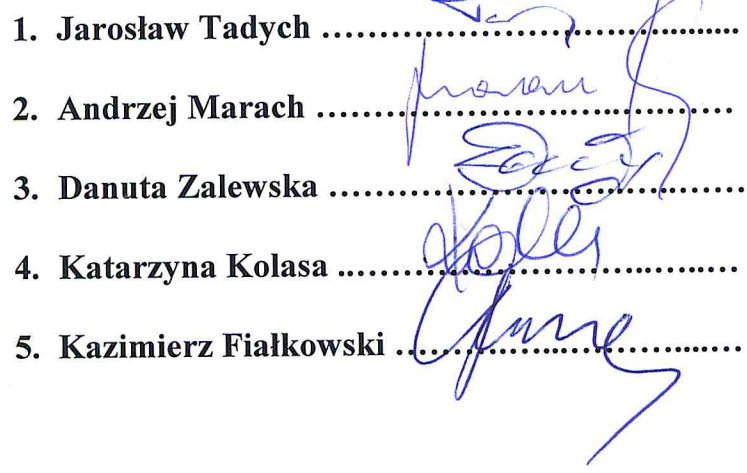 1. Jarosław Tadych ....................................
2. Andrzej Marach ....................................
3. Danuta Zalewska ....................................
4. Katarzyna Kolasa ....................................
5. Kazimierz Fiałkowski ....................................